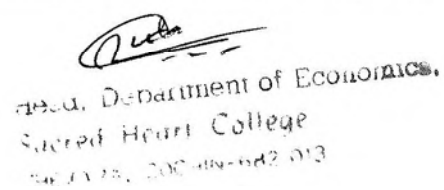 Head, Department of Economics,
Sacred Heart College
682 013